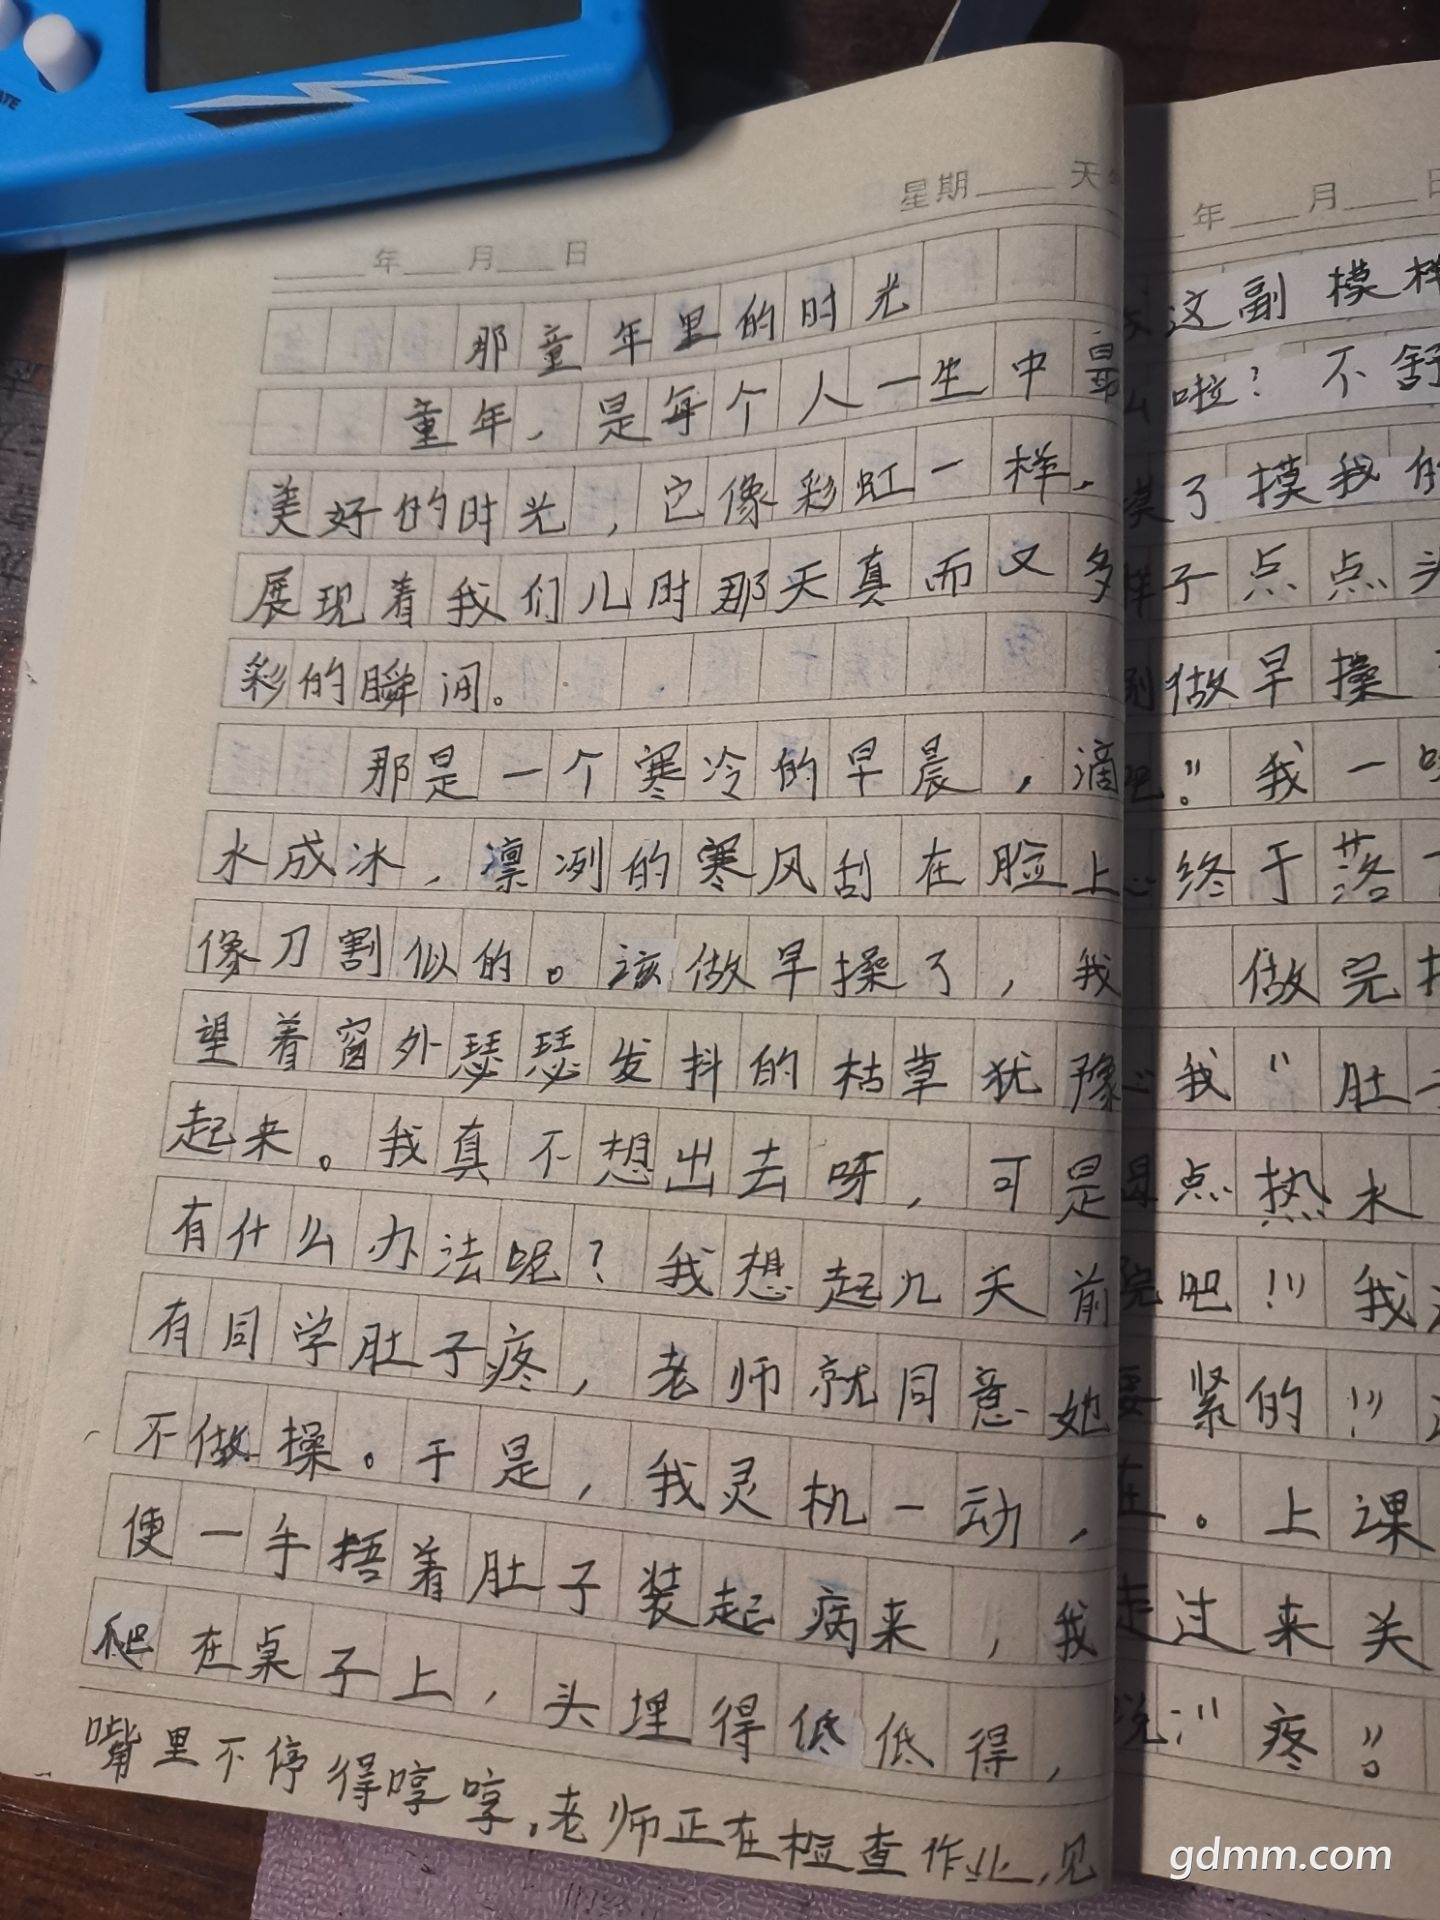 ATE
年 月 日
星期 天
那童年里的时光
童年，是每个人一生中最
美好的时光，它像彩虹一样，
展现着我们儿时那天真而又多
彩的瞬间。
那是一个寒冷的早晨，滴
水成冰，凛冽的寒风刮在脸上
像刀割似的。该做早操了，我
望着窗外瑟瑟发抖的枯草犹豫
起来。我真不想出去呀，可是
有什么办法呢？我想起几天前
有同学肚子疼，老师就同意她
不做操。于是，我灵机一动，
便一手捂着肚子装起病来，我
爬在桌子上，头埋得低低得，
嘴里不停得哼哼，老师正在检查作业，见
年 月 日
这副模样
么啦？不舒
摸了摸我的
样子点点头
别做早操
吧。”我一
终于落
做完
我“肚
点热水
院吧！”我
要紧的！”
在。上课
走过来关
说：“疼”。
gdmm.com